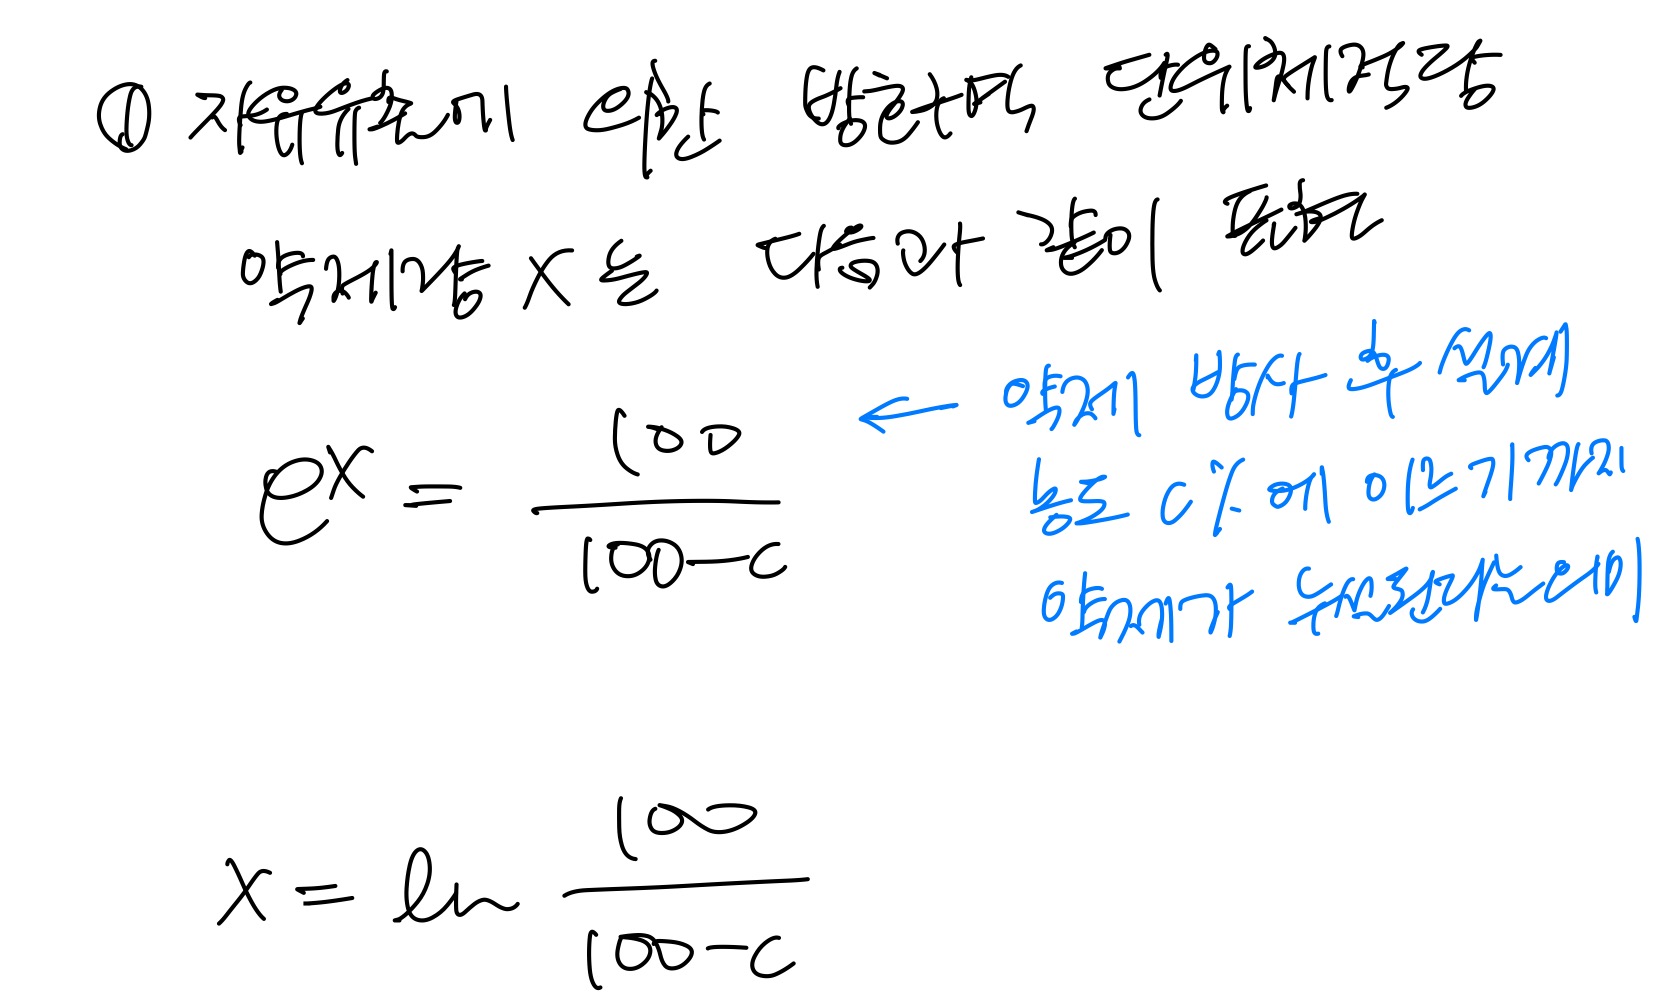 ① 자유유출에 의한 방출하며 단위체적당
약제량 X 는 다음과 같이 표현
e^x = 100 / (100-C)
← 약제 방사 후 설계
농도 C%에 이르기까지
약제가 누설된다는 의미
X = ln 100 / (100-C)